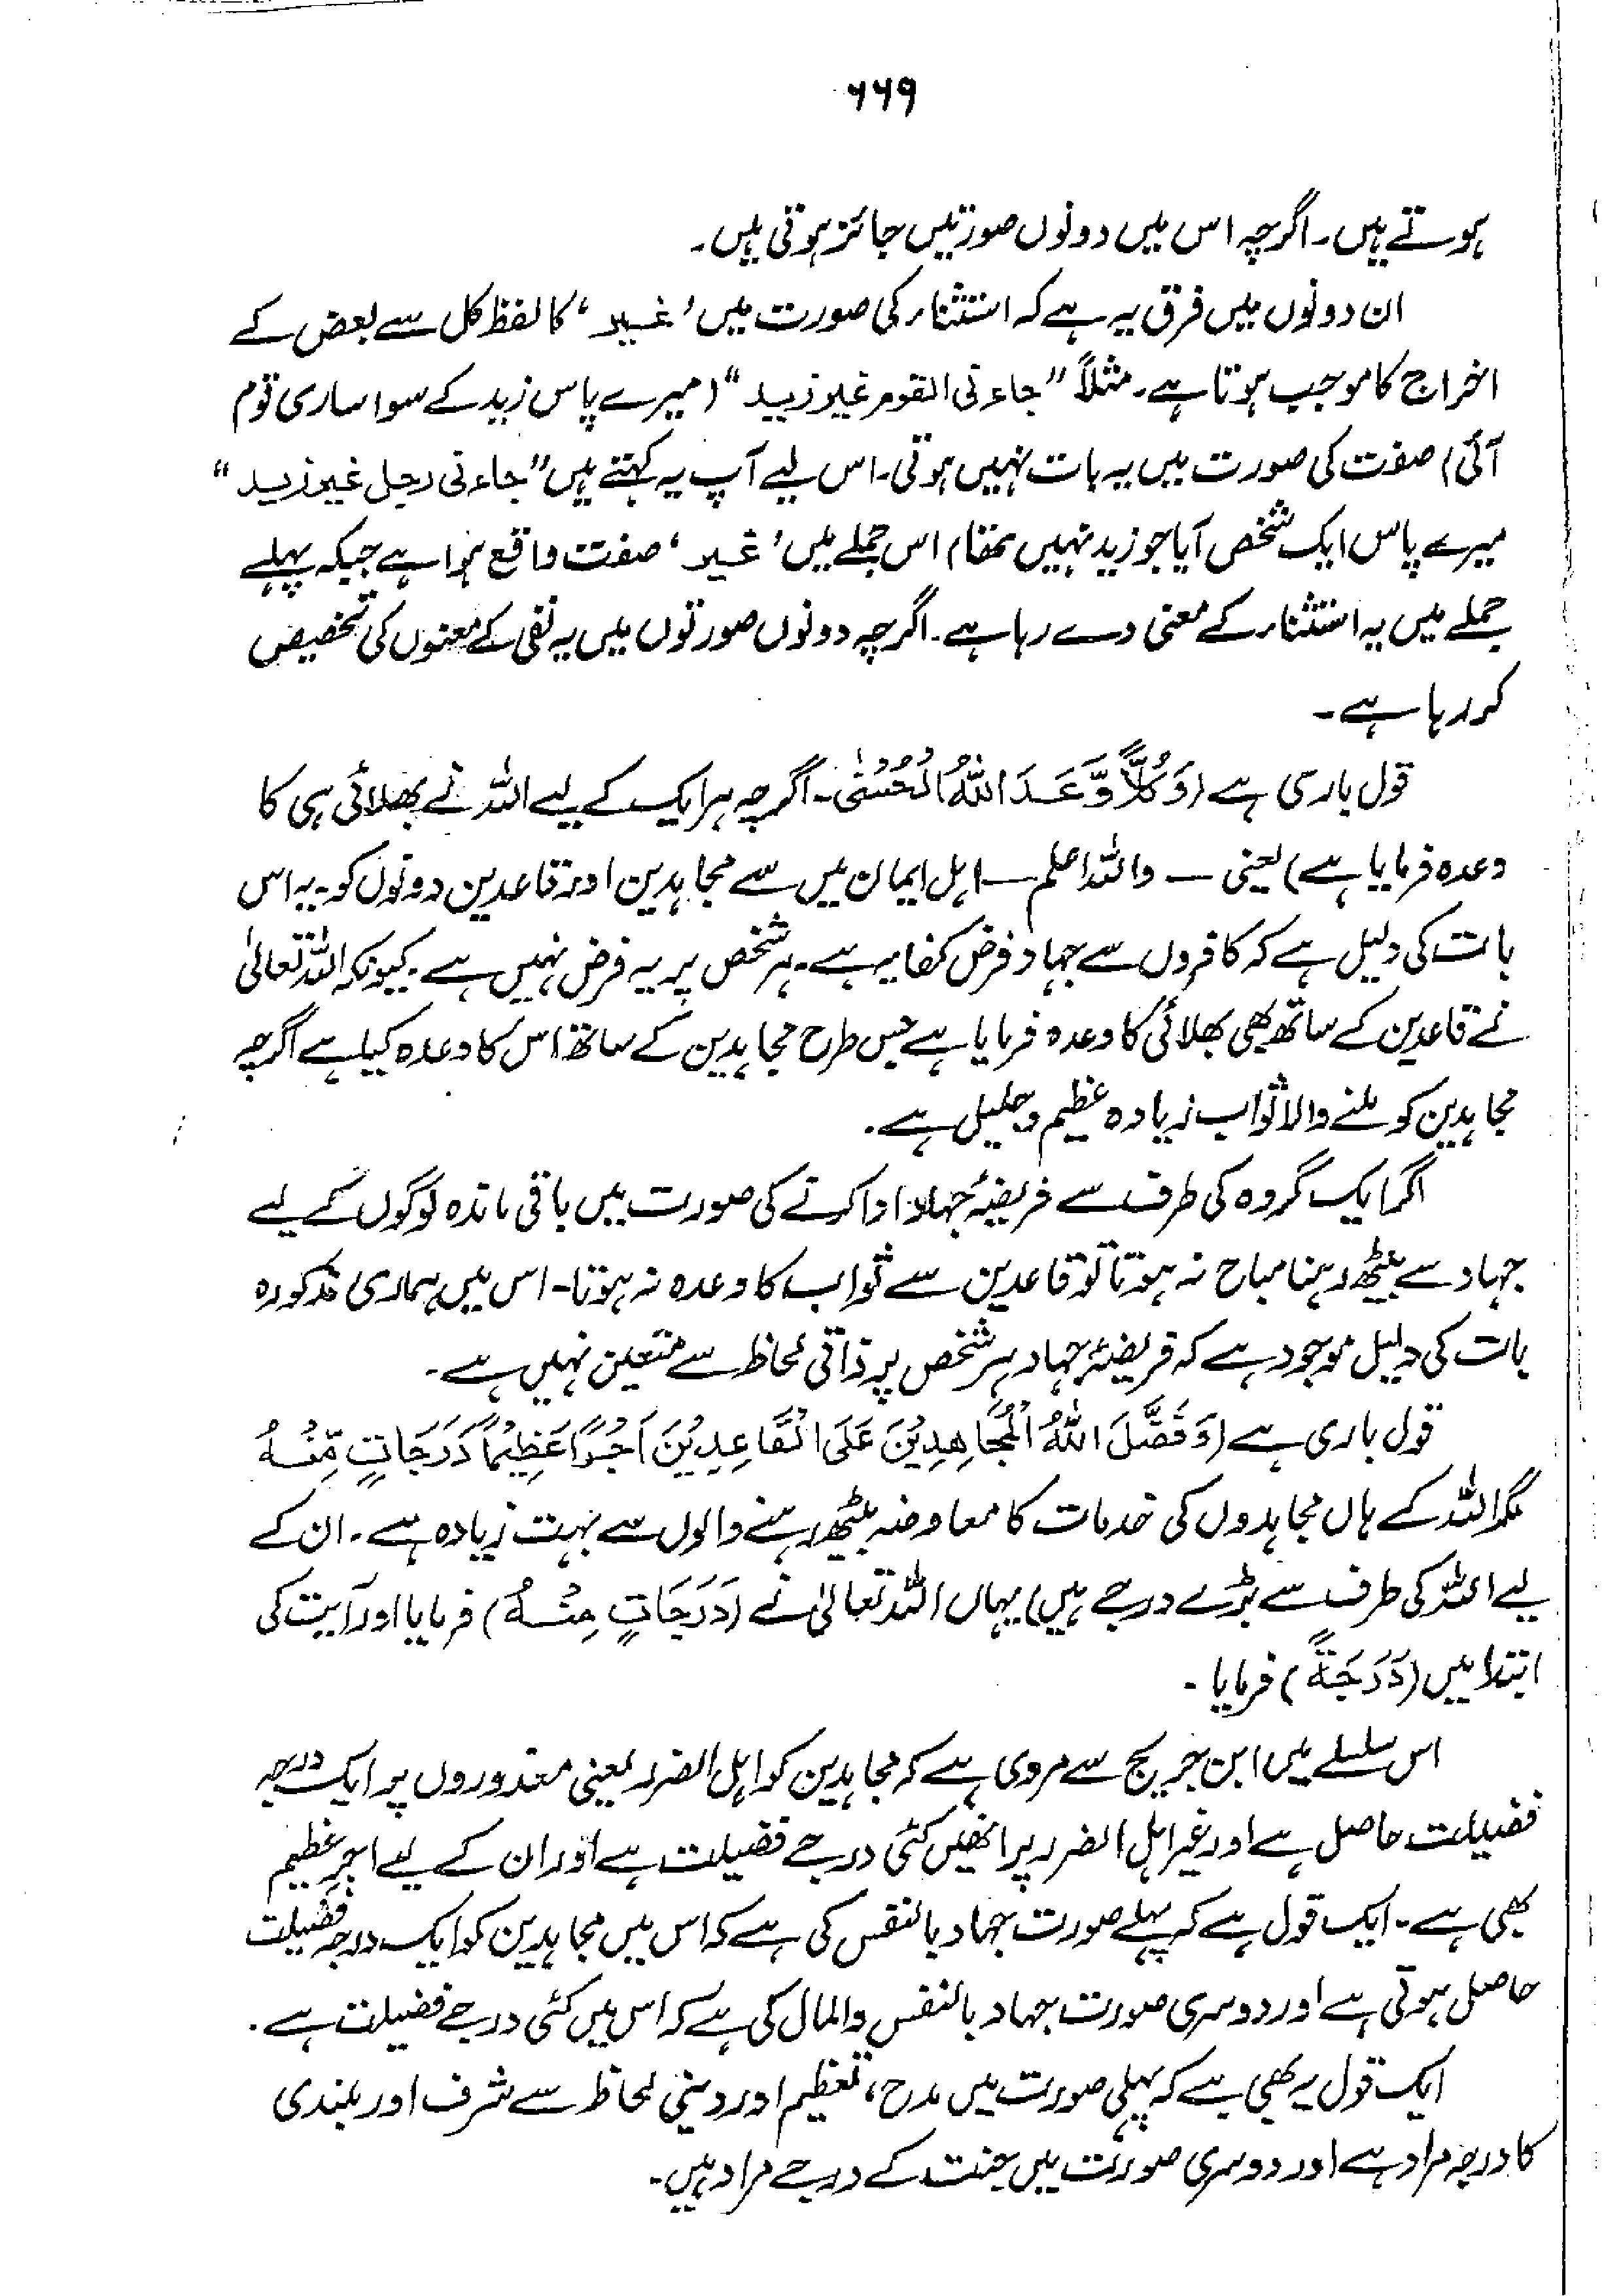 ۶۶۹
ہوتے ہیں۔ اگرچہ اس میں دونوں صورتیں جائز ہوتی ہیں۔
ان دونوں میں فرق یہ ہے کہ استثناء کی صورت میں ’غیر‘ کا لفظ کل سے بعض کے
اخراج کا موجب ہوتا ہے۔ مثلاً ”جاءنی القوم غیر زید“ (میرے پاس زید کے سوا ساری قوم
آئی) صفت کی صورت میں یہ بات نہیں ہوتی۔ اس لیے آپ یہ کہتے ہیں ”جاءنی رجل غیر زید“
میرے پاس ایک شخص آیا جو زید نہیں تھا) اس جملے میں ’غیر‘ صفت واقع ہوا ہے جبکہ پہلے
جملے میں یہ استثناء کے معنی دے رہا ہے۔ اگرچہ دونوں صورتوں میں یہ نفی کے معنوں کی تخصیص
کر رہا ہے۔
قول باری ہے (وَكُلًّا وَّعَدَ اللّٰهُ الْحُسْنٰى۔ اگرچہ ہر ایک کے لیے اللہ نے بھلائی ہی کا
وعدہ فرمایا ہے) یعنی — واللہ اعلم — اہل ایمان میں سے مجاہدین اور قاعدین دونوں کو۔ یہ اس
بات کی دلیل ہے کہ کافروں سے جہاد فرض کفایہ ہے۔ ہر شخص پر یہ فرض نہیں ہے۔ کیونکہ اللہ تعالیٰ
نے قاعدین کے ساتھ بھی بھلائی کا وعدہ فرمایا ہے جس طرح مجاہدین کے ساتھ اس کا وعدہ کیا ہے اگرچہ
مجاہدین کو ملنے والا ثواب زیادہ عظیم و جلیل ہے۔
اگر ایک گروہ کی طرف سے فریضۂ جہاد ادا کرنے کی صورت میں باقی ماندہ لوگوں کے لیے
جہاد سے بیٹھ رہنا مباح نہ ہوتا تو قاعدین سے ثواب کا وعدہ نہ ہوتا۔ اس میں ہماری مذکورہ
بات کی دلیل موجود ہے کہ فریضۂ جہاد ہر شخص پر ذاتی لحاظ سے متعین نہیں ہے۔
قول باری ہے (وَفَضَّلَ اللّٰهُ الْمُجَاهِدِيْنَ عَلَى الْقَاعِدِيْنَ اَجْرًا عَظِيْمًا دَرَجَاتٍ مِّنْهُ
مگر اللہ کے ہاں مجاہدوں کی خدمات کا معاوضہ بیٹھ رہنے والوں سے بہت زیادہ ہے۔ ان کے
لیے اللہ کی طرف سے بڑے درجے ہیں) یہاں اللہ تعالیٰ نے (دَرَجَاتٍ مِنْهُ) فرمایا اور آیت کی
ابتدا میں (دَرَجَةً) فرمایا۔
اس سلسلے میں ابن جریج سے مروی ہے کہ مجاہدین کو اہل الضرر یعنی معذوروں پر ایک درجہ
فضیلت حاصل ہے اور غیر اہل الضرر پر انھیں کئی درجے فضیلت ہے اور ان کے لیے اجر عظیم
بھی ہے۔ ایک قول ہے کہ پہلے صورت جہاد بالنفس کی ہے کہ اس میں مجاہدین کو ایک درجہ فضیلت
حاصل ہوتی ہے اور دوسری صورت جہاد بالنفس والمال کی ہے کہ اس میں کئی درجے فضیلت ہے۔
ایک قول یہ بھی ہے کہ پہلی صورت میں مدح، تعظیم اور دینی لحاظ سے شرف اور بلندی
کا درجہ مراد ہے اور دوسری صورت میں جنت کے درجے مراد ہیں۔